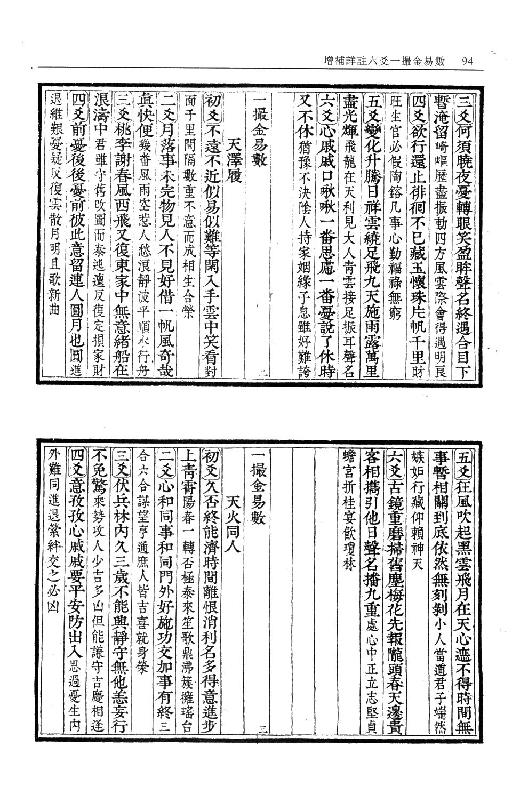 增補詳註六爻一撮金易數　94
三爻何須曉夜憂轉眼笑盈眸聲名終遇合目下
暫淹留崎嶇歷盡振動四方風雲際會得遇明良
四爻欲行還止徘徊不已藏玉懷珠片帆千里財
旺生官必假陶鎔几事心勤福祿無窮
五爻變化升騰日祥雲繞足飛九天施雨露萬里
盡光輝飛龍在天利見大人青雲接足振耳聲名
六爻心戚戚口啾啾一番思慮一番憂說了休時
又不休猶豫不決陰人持家姻緣子息雖好難誇
一撮金易數
天澤履
初爻不遠不近似易似難等閑入手雲中笑看對
面千里間隔數重不意而成相生合榮
二爻月落事未完物見人不見好借一帆風奇哉
真快便幾番風雨空惹人愁浪靜波平順水行舟
三爻桃李謝春風西飛又復東家中無意緒船在
浪濤中君雖守舊改圖而泰逃遁反復定損家財
四爻前憂後後憂前彼此意留連人圓月也圓進
退維艱憂疑反復雲散月明且歌新曲
五爻狂風吹起黑雲飛月在天心遮不得時間無
事暫相關到底依然無刻剝小人當道君子端然
嫉妬行藏仰賴神天
六爻古鏡重磨掃舊塵梅花先報隴頭春天邊貴
客相攜引他日聲名播九重處心中正立志堅貞
蟾宮折桂宴飲瓊林
一撮金易數
天火同人
初爻久否終能濟時間離恨消利名多得意進步
上青霄陽春一轉否極泰來笙歌鼎沸簇擁瑤台
二爻心和同事和同門外好施功交加事有終三
合六合謀望亨通庶人皆吉喜就身榮
三爻伏兵林內久三歲不能興靜守無他恙妄行
不免驚乘勢攻人少吉多凶但能謙守吉慶相逢
四爻意孜孜心戚戚要平安防出入恩過憂生內
外難同進退縈絆交之必凶